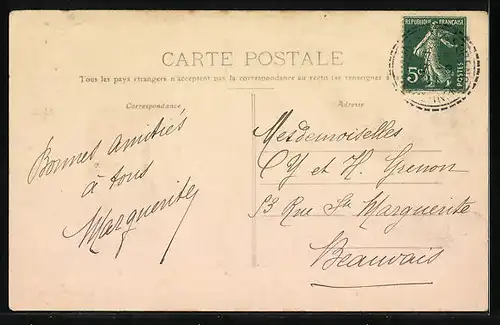 CARTE POSTALE
Tous les pays étrangers n'acceptent pas la correspondance au recto (se renseigner à
Correspondance
Adresse
RÉPUBLIQUE FRANÇAISE
5c
POSTES
Bonnes amitiés
à tous
Marguerite
Mesdemoiselles
et H. Grenon
53 Rue Ste Marguerite
Beauvais